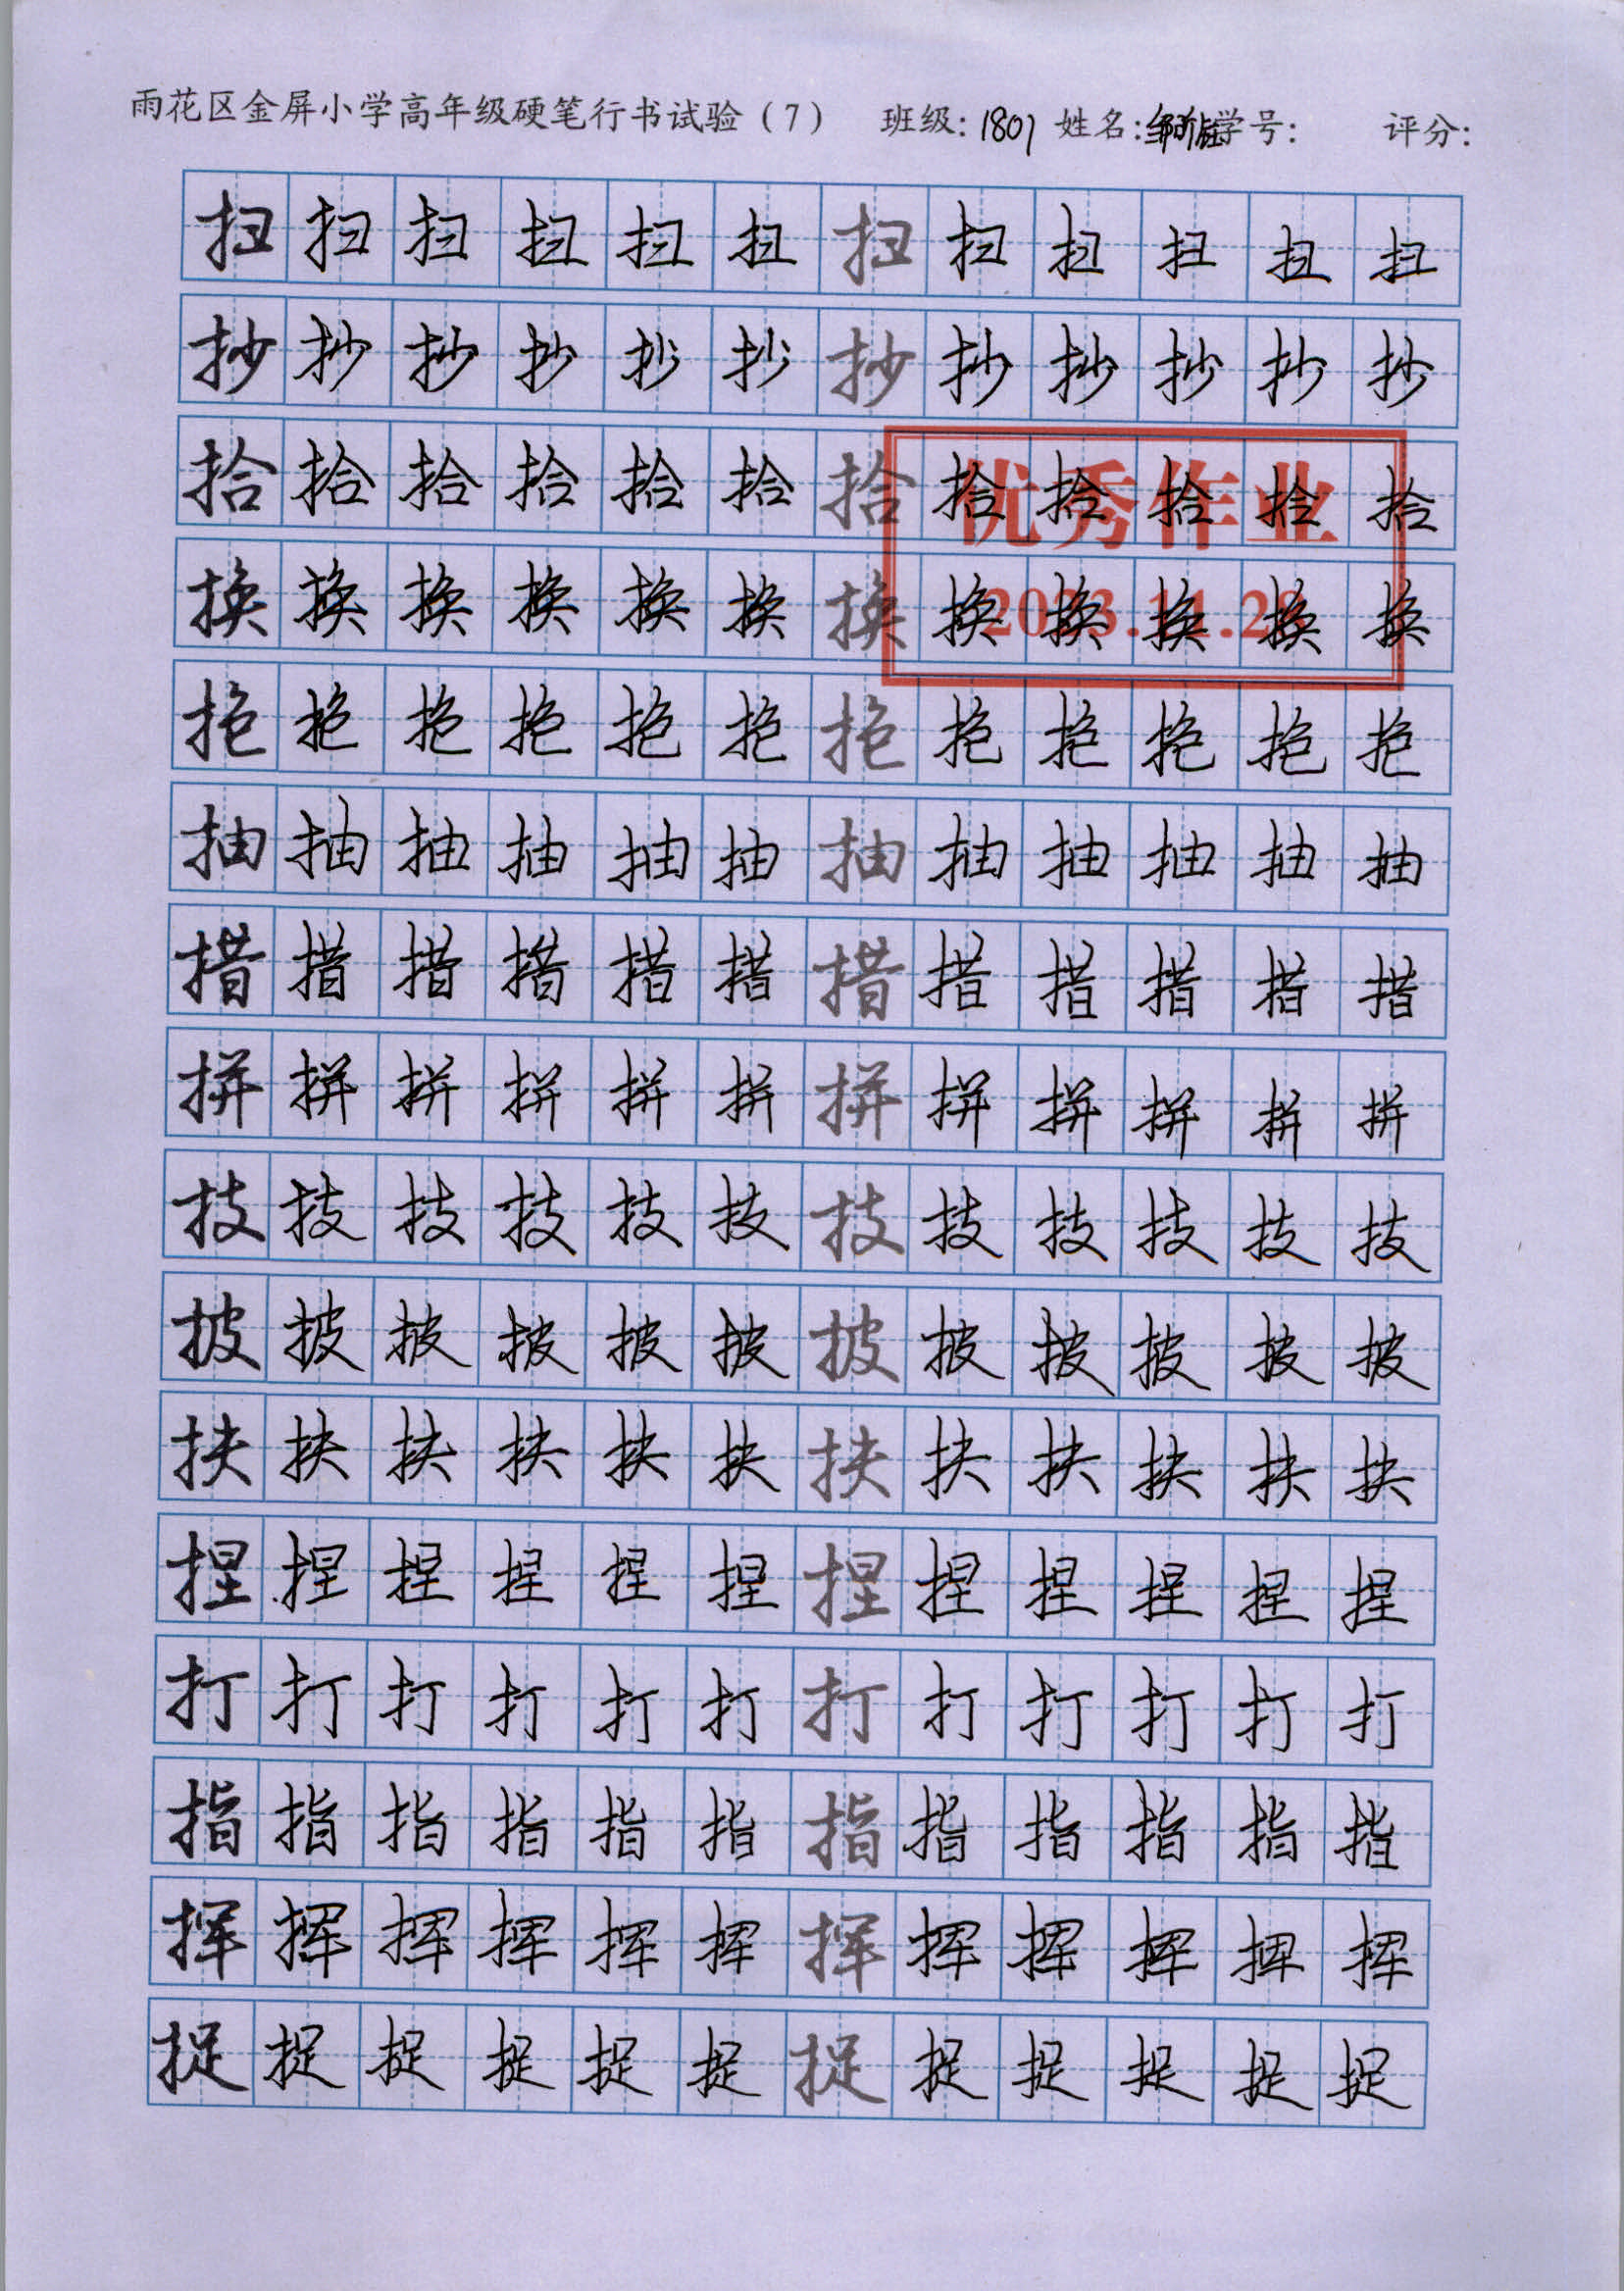 雨花区金屏小学高年级硬笔行书试验（7） 班级：1801 姓名：邹 学号： 评分：
扫扫扫扫扫扫扫扫扫扫扫扫
抄抄抄抄抄抄抄抄抄抄抄抄
拾拾拾拾拾拾拾拾拾拾拾拾
优秀作业
换换换换换换换换换换换换
2023.11.2
拖拖拖拖拖拖拖拖拖拖拖拖
抽抽抽抽抽抽抽抽抽抽抽抽
措措措措措措措措措措措措
拼拼拼拼拼拼拼拼拼拼拼拼
技技技技技技技技技技技技
披披披披披披披披披披披披
扶扶扶扶扶扶扶扶扶扶扶扶
捏捏捏捏捏捏捏捏捏捏捏捏
打打打打打打打打打打打打
指指指指指指指指指指指指
挥挥挥挥挥挥挥挥挥挥挥挥
捉捉捉捉捉捉捉捉捉捉捉捉